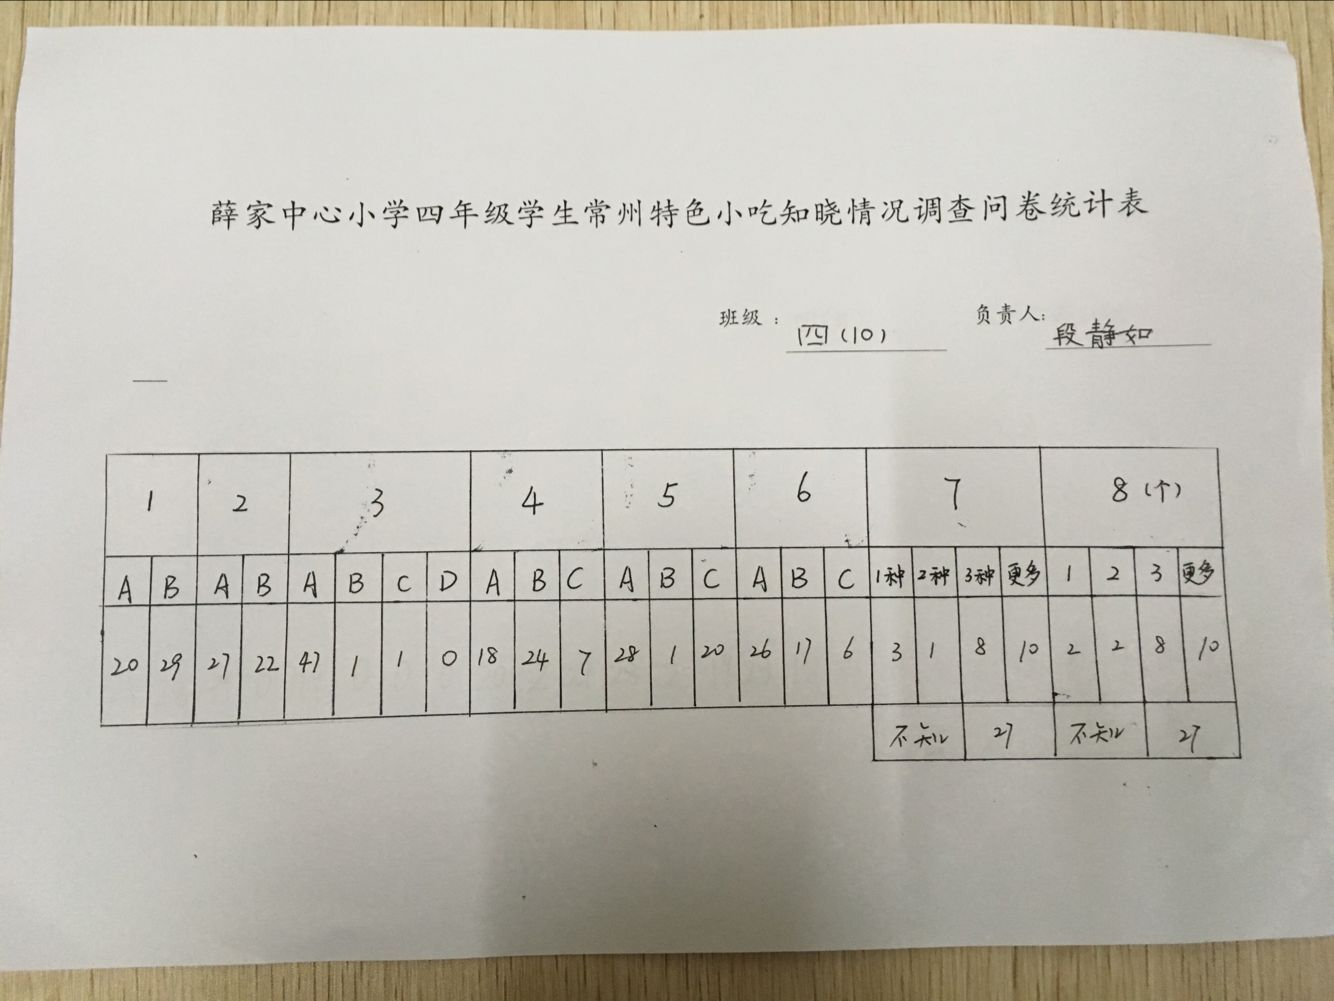 薛家中心小学四年级学生常州特色小吃知晓情况调查问卷统计表
班级： 四（10） 负责人: 段静如
1 2 3 4 5 6 7 8（个）
A B A B A B C D A B C A B C A B C 1种 2种 3种 更多 1 2 3 更多
20 29 27 22 47 1 1 0 18 24 7 28 1 20 26 17 6 3 1 8 10 2 2 8 10
不知 27 不知 27